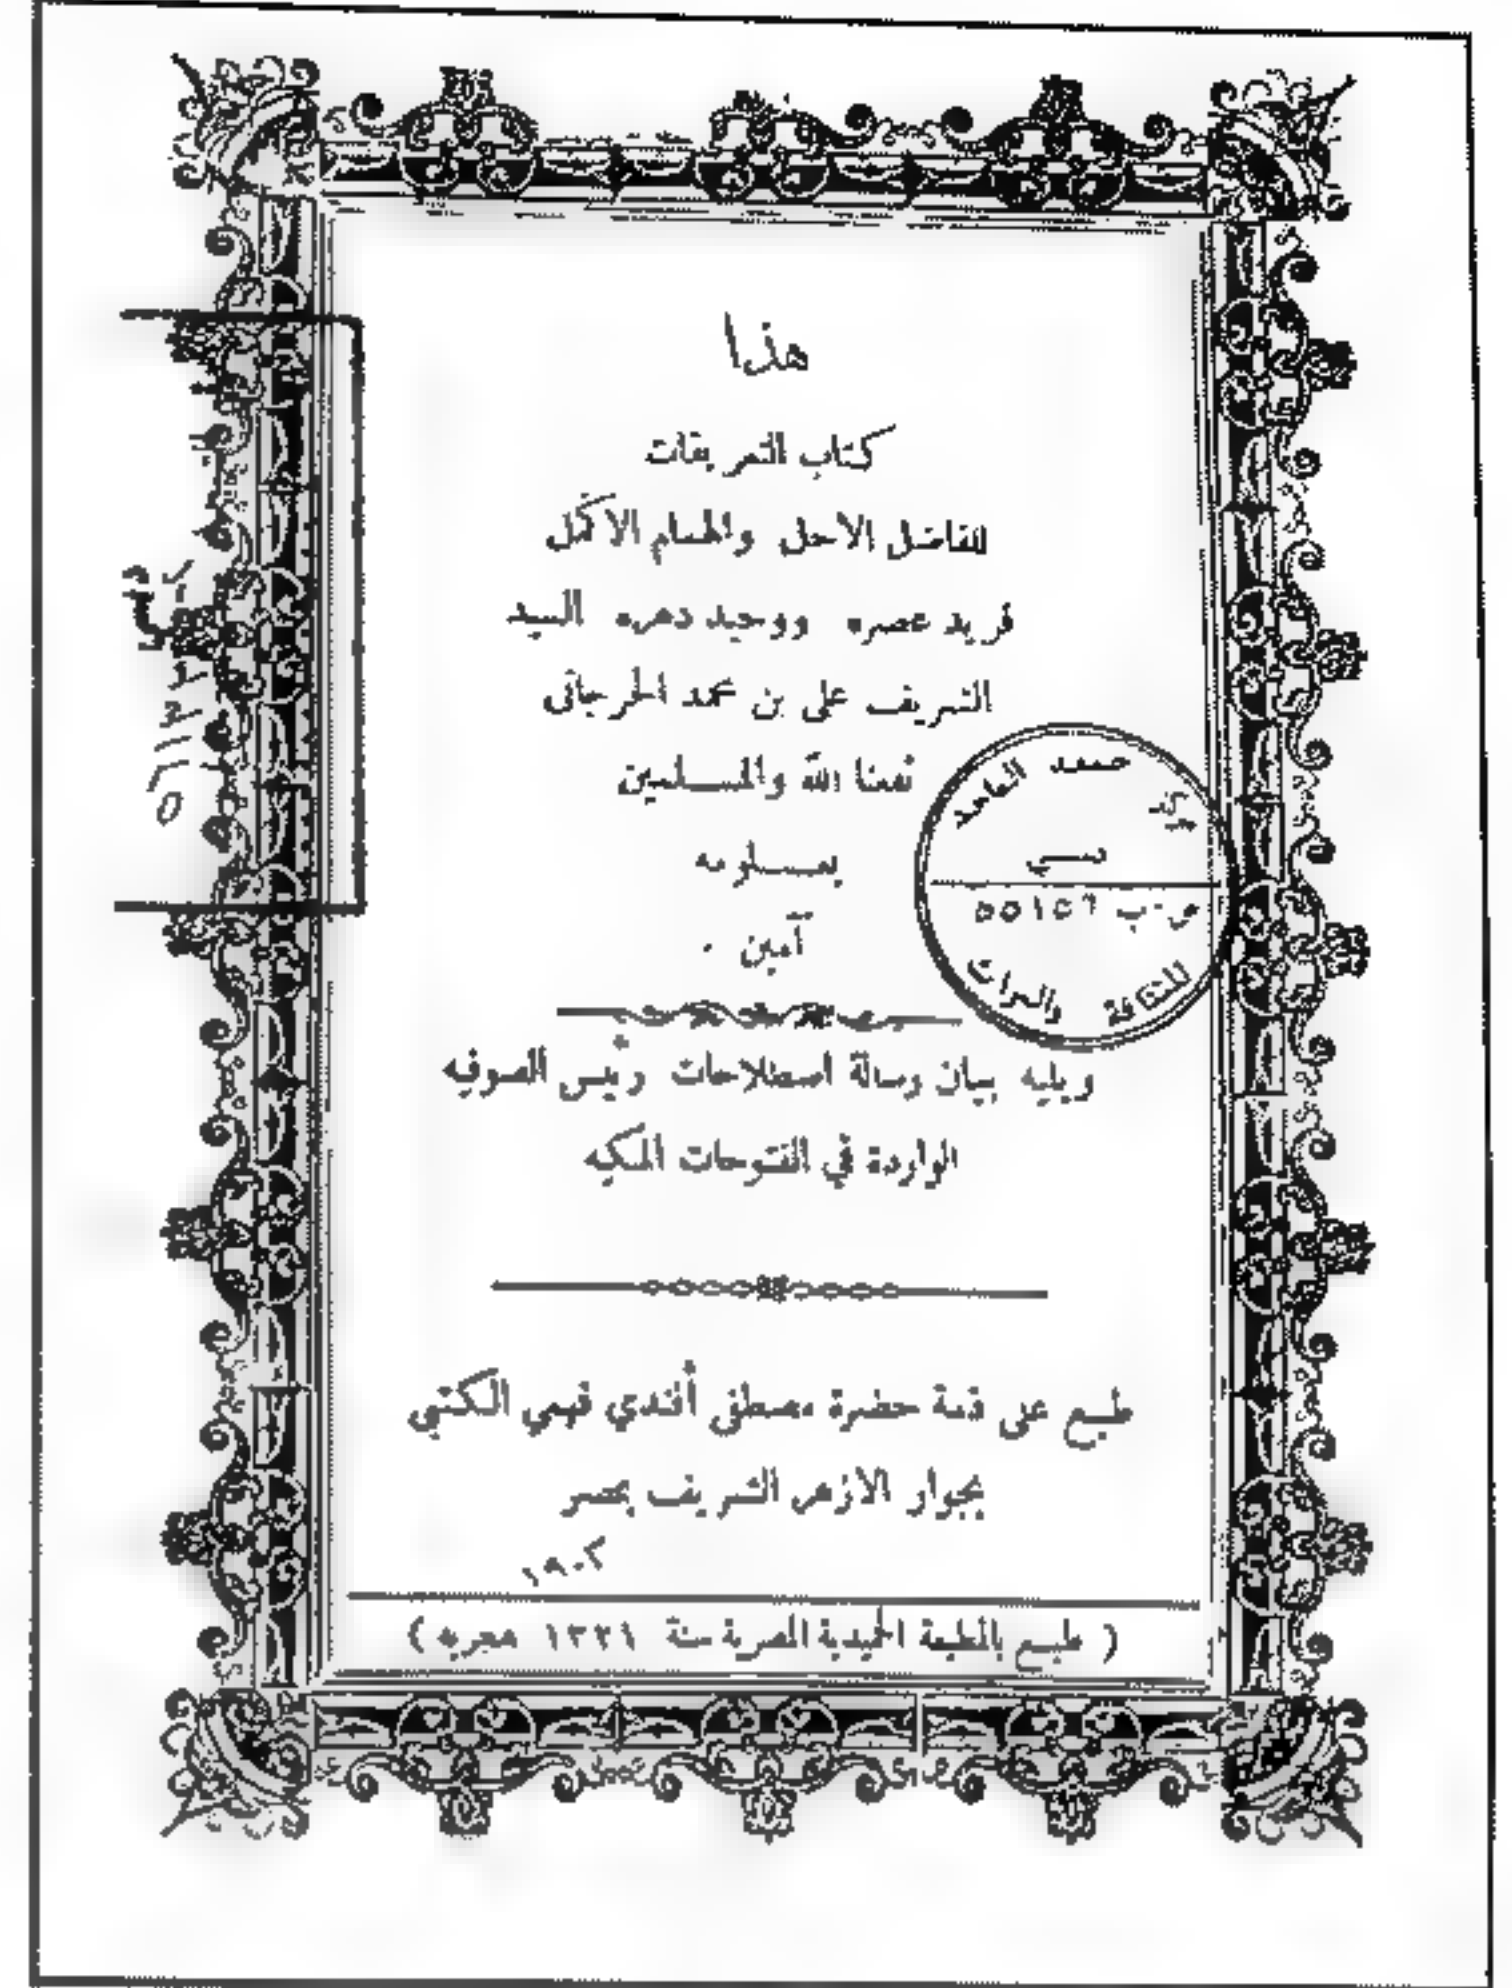 هذا
كتاب التعريفات
للفاضل الاجل والهمام الاكمل
فريد عصره ووحيد دهره السيد
الشريف على بن محمد الجرجانى
نفعنا الله والمسلمين
بعلومه
آمين
جمعه الماجد
مركز
دبي
ص.ب ٥٥١٥٦
للثقافة والتراث
ويليه بيان رسالة اصطلاحات رئيس الصوفيه
الواردة في الفتوحات المكيه
طبع على ذمة حضرة مصطفى أفندي فهمي الكتبي
بجوار الازهر الشريف بمصر
١٩٠٣
( طبع بالمطبعة الحميدية المصرية سنة ١٣٢١ هجريه )